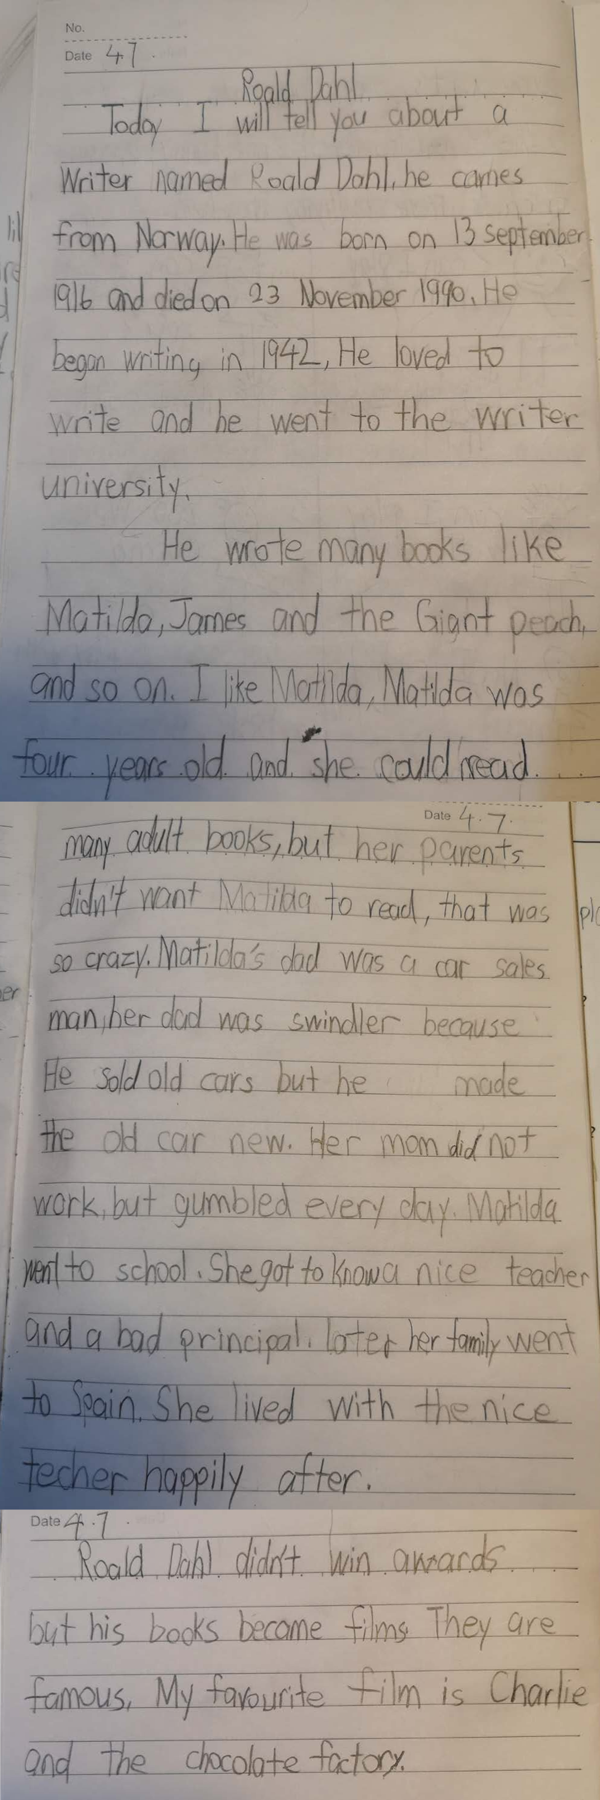 No.
Date 4.7.
Roald Dahl
Today I will tell you about a
Writer named Roald Dahl, he cames
from Norway. He was born on 13 september
1916 and died on 23 November 1990. He
began writing in 1942, He loved to
write and he went to the writer
university.
He wrote many books like
Matilda, James and the Giant peach,
and so on. I like Matilda, Matilda was
four years old and she could read
Date 4.7.
many adult books, but her parents
didn't want Matilda to read, that was
so crazy. Matilda's dad was a car sales
man, her dad was swindler because
He sold old cars but he made
the old car new. Her mom did not
work, but gumbled every day. Matilda
went to school. She got to know a nice teacher
and a bad principal. later her family went
to Spain. She lived with the nice
techer happily after.
Date 4.7
Roald Dahl didn't win awards
but his books become films They are
famous, My favourite film is Charlie
and the chocolate factory.